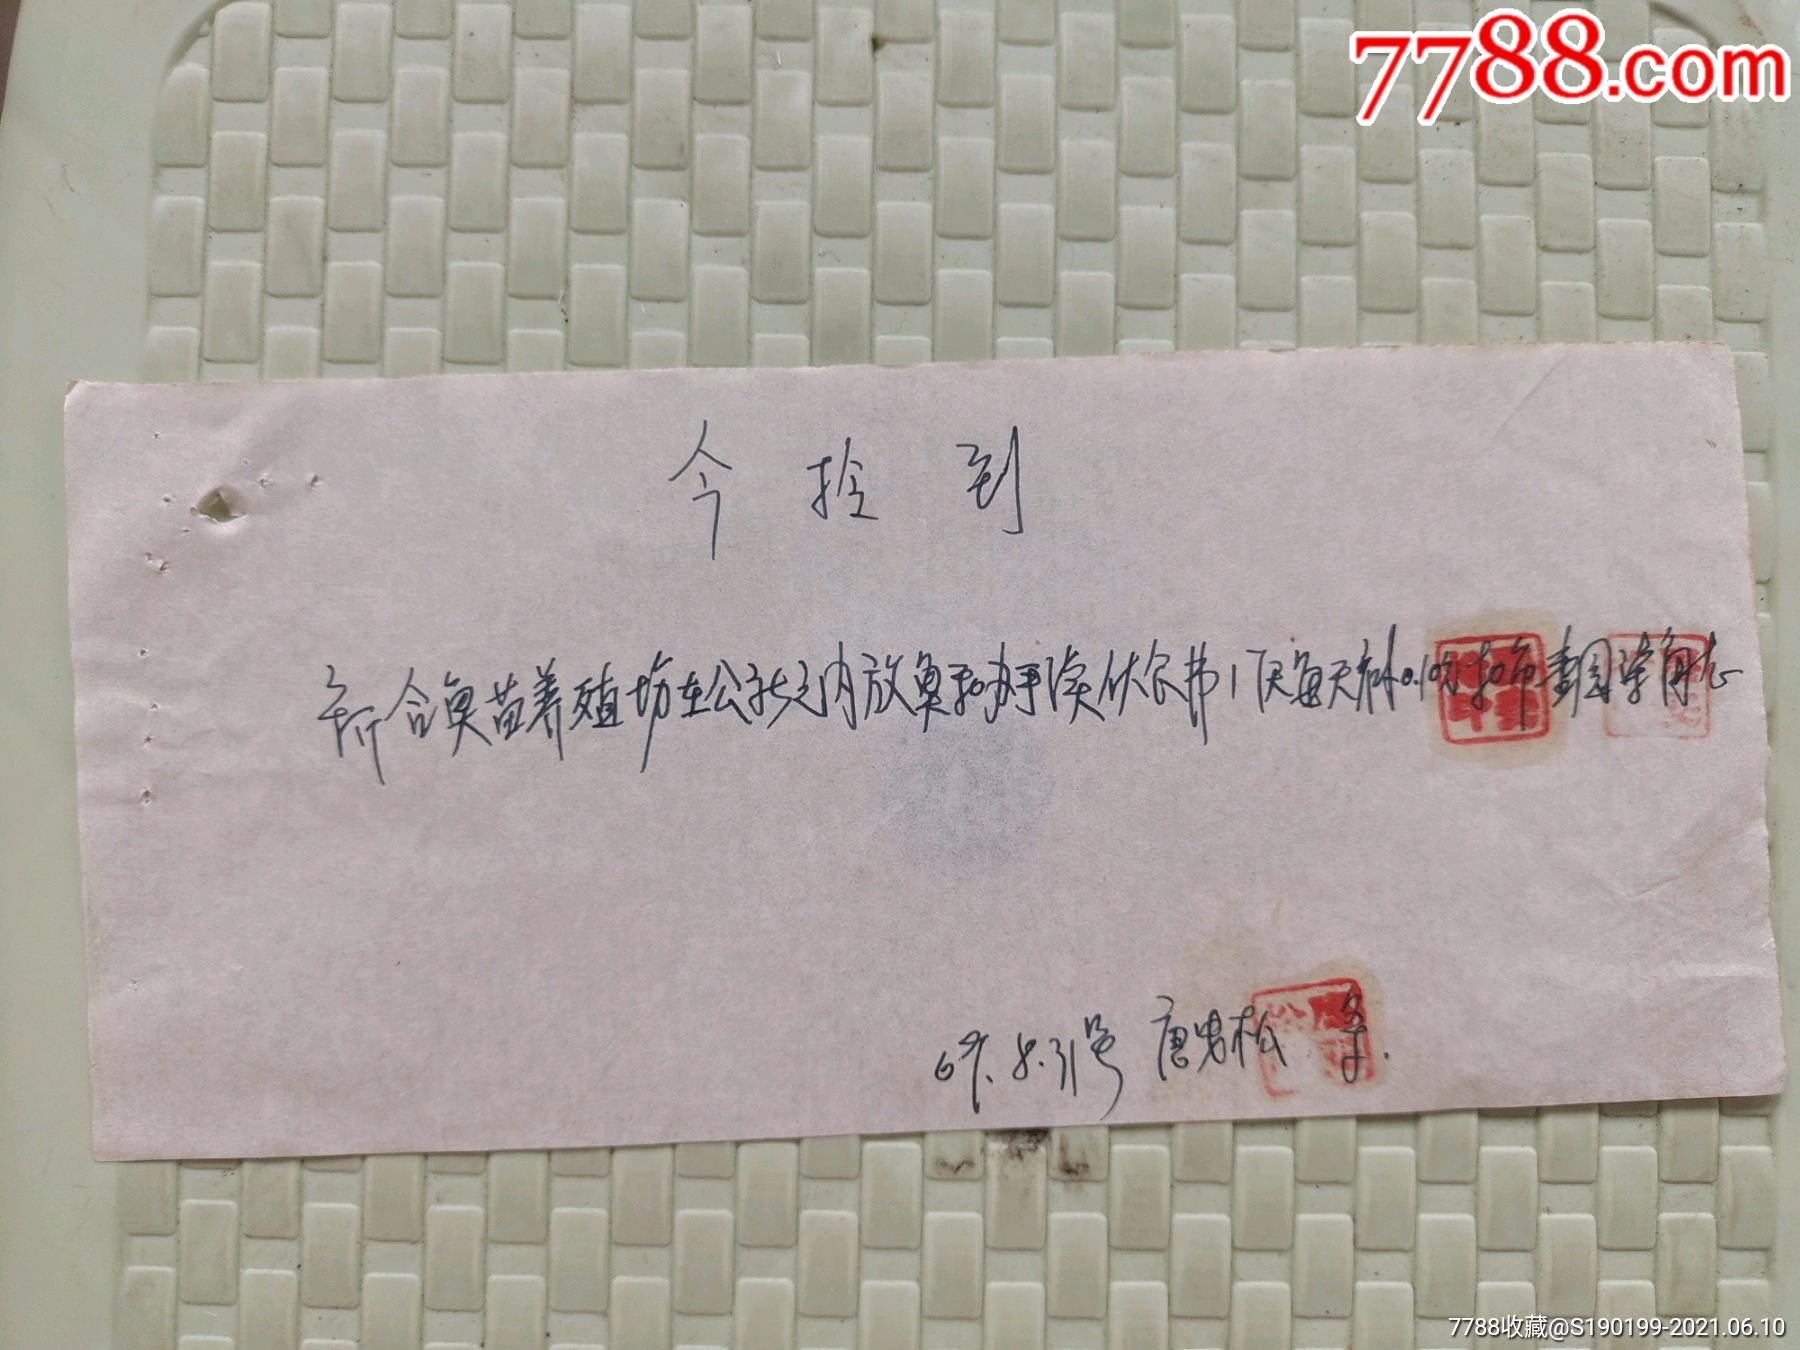 7788.com
今拴到
新合奥苗养殖场在公社之内放奥和办手续伙食费17天每天补0.10
69.8.31号 唐 松 条.
7788收藏@S190199-2021.06.10